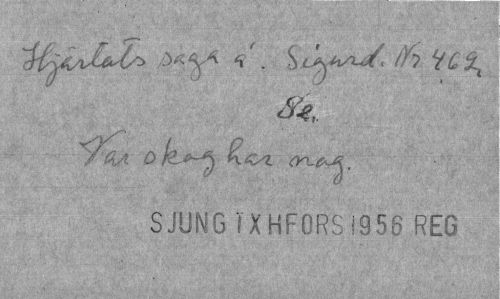 Hjärtats saga á. Sigurd. Nr 462
Se.
Var skog har nog.
SJUNG IX HFORS 1956 REG